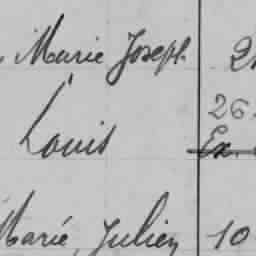 Marie Joseph 2
26
Louis Ex.
Marie, Julien 10